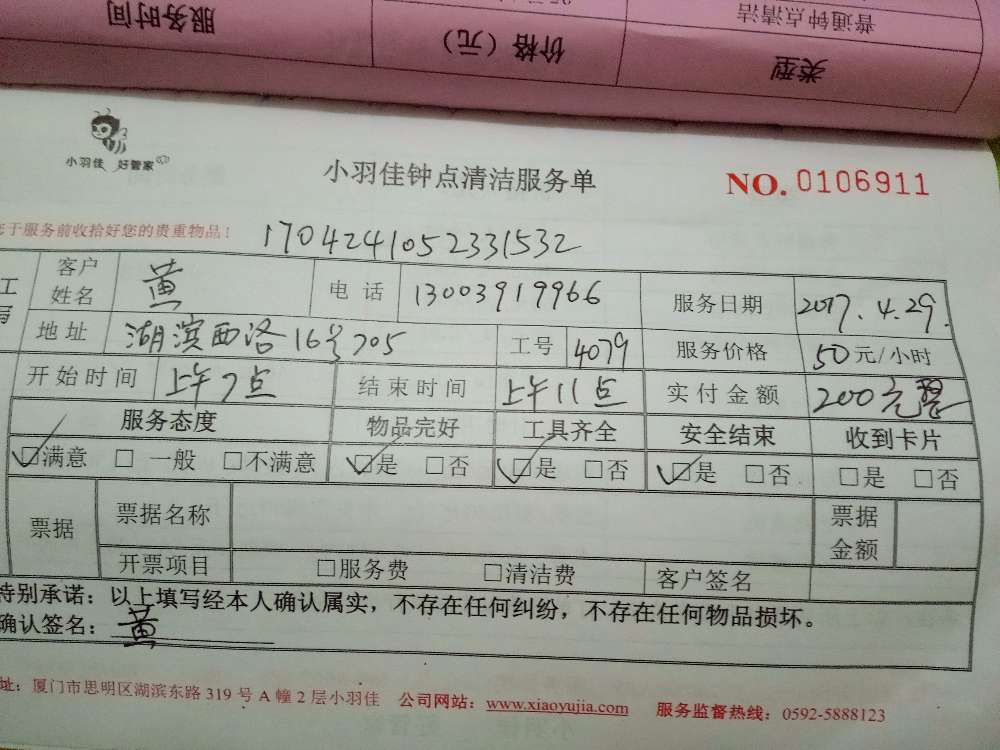 服务时间
价格（元）
普通钟点清洁
类型
小羽佳 好管家
小羽佳钟点清洁服务单
NO. 0106911
于服务前收拾好您的贵重物品！
1704241052331532
客户姓名 黄 电话 13003919966 服务日期 2017.4.29.
地址 湖滨西洛16号705 工号 4079 服务价格 50元/小时
开始时间 上午7点 结束时间 上午11点 实付金额 200元整
服务态度 物品完好 工具齐全 安全结束 收到卡片
☑满意 □一般 □不满意 ☑是 □否 ☑是 □否 ☑是 □否 □是 □否
票据 票据名称 票据金额
开票项目 □服务费 □清洁费 客户签名
特别承诺：以上填写经本人确认属实，不存在任何纠纷，不存在任何物品损坏。
确认签名：黄
址：厦门市思明区湖滨东路319号A幢2层小羽佳 公司网站：www.xiaoyujia.com 服务监督热线：0592-5888123